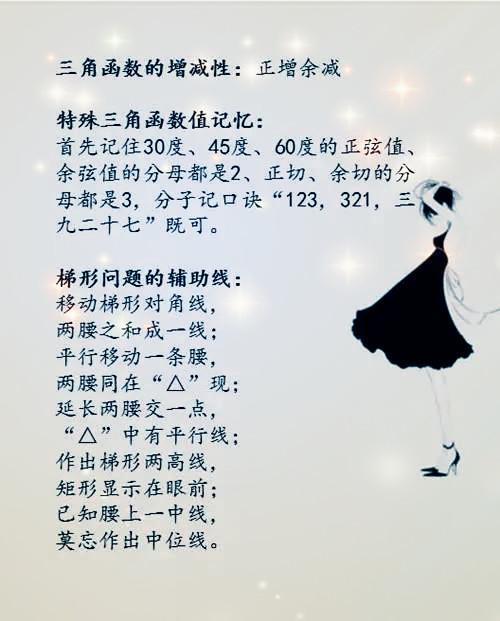 三角函数的增减性：正增余减
特殊三角函数值记忆：
首先记住30度、45度、60度的正弦值、
余弦值的分母都是2、正切、余切的分
母都是3，分子记口诀“123，321，三
九二十七”既可。
梯形问题的辅助线：
移动梯形对角线，
两腰之和成一线；
平行移动一条腰，
两腰同在“△”现；
延长两腰交一点，
“△”中有平行线；
作出梯形两高线，
矩形显示在眼前；
已知腰上一中线，
莫忘作出中位线。